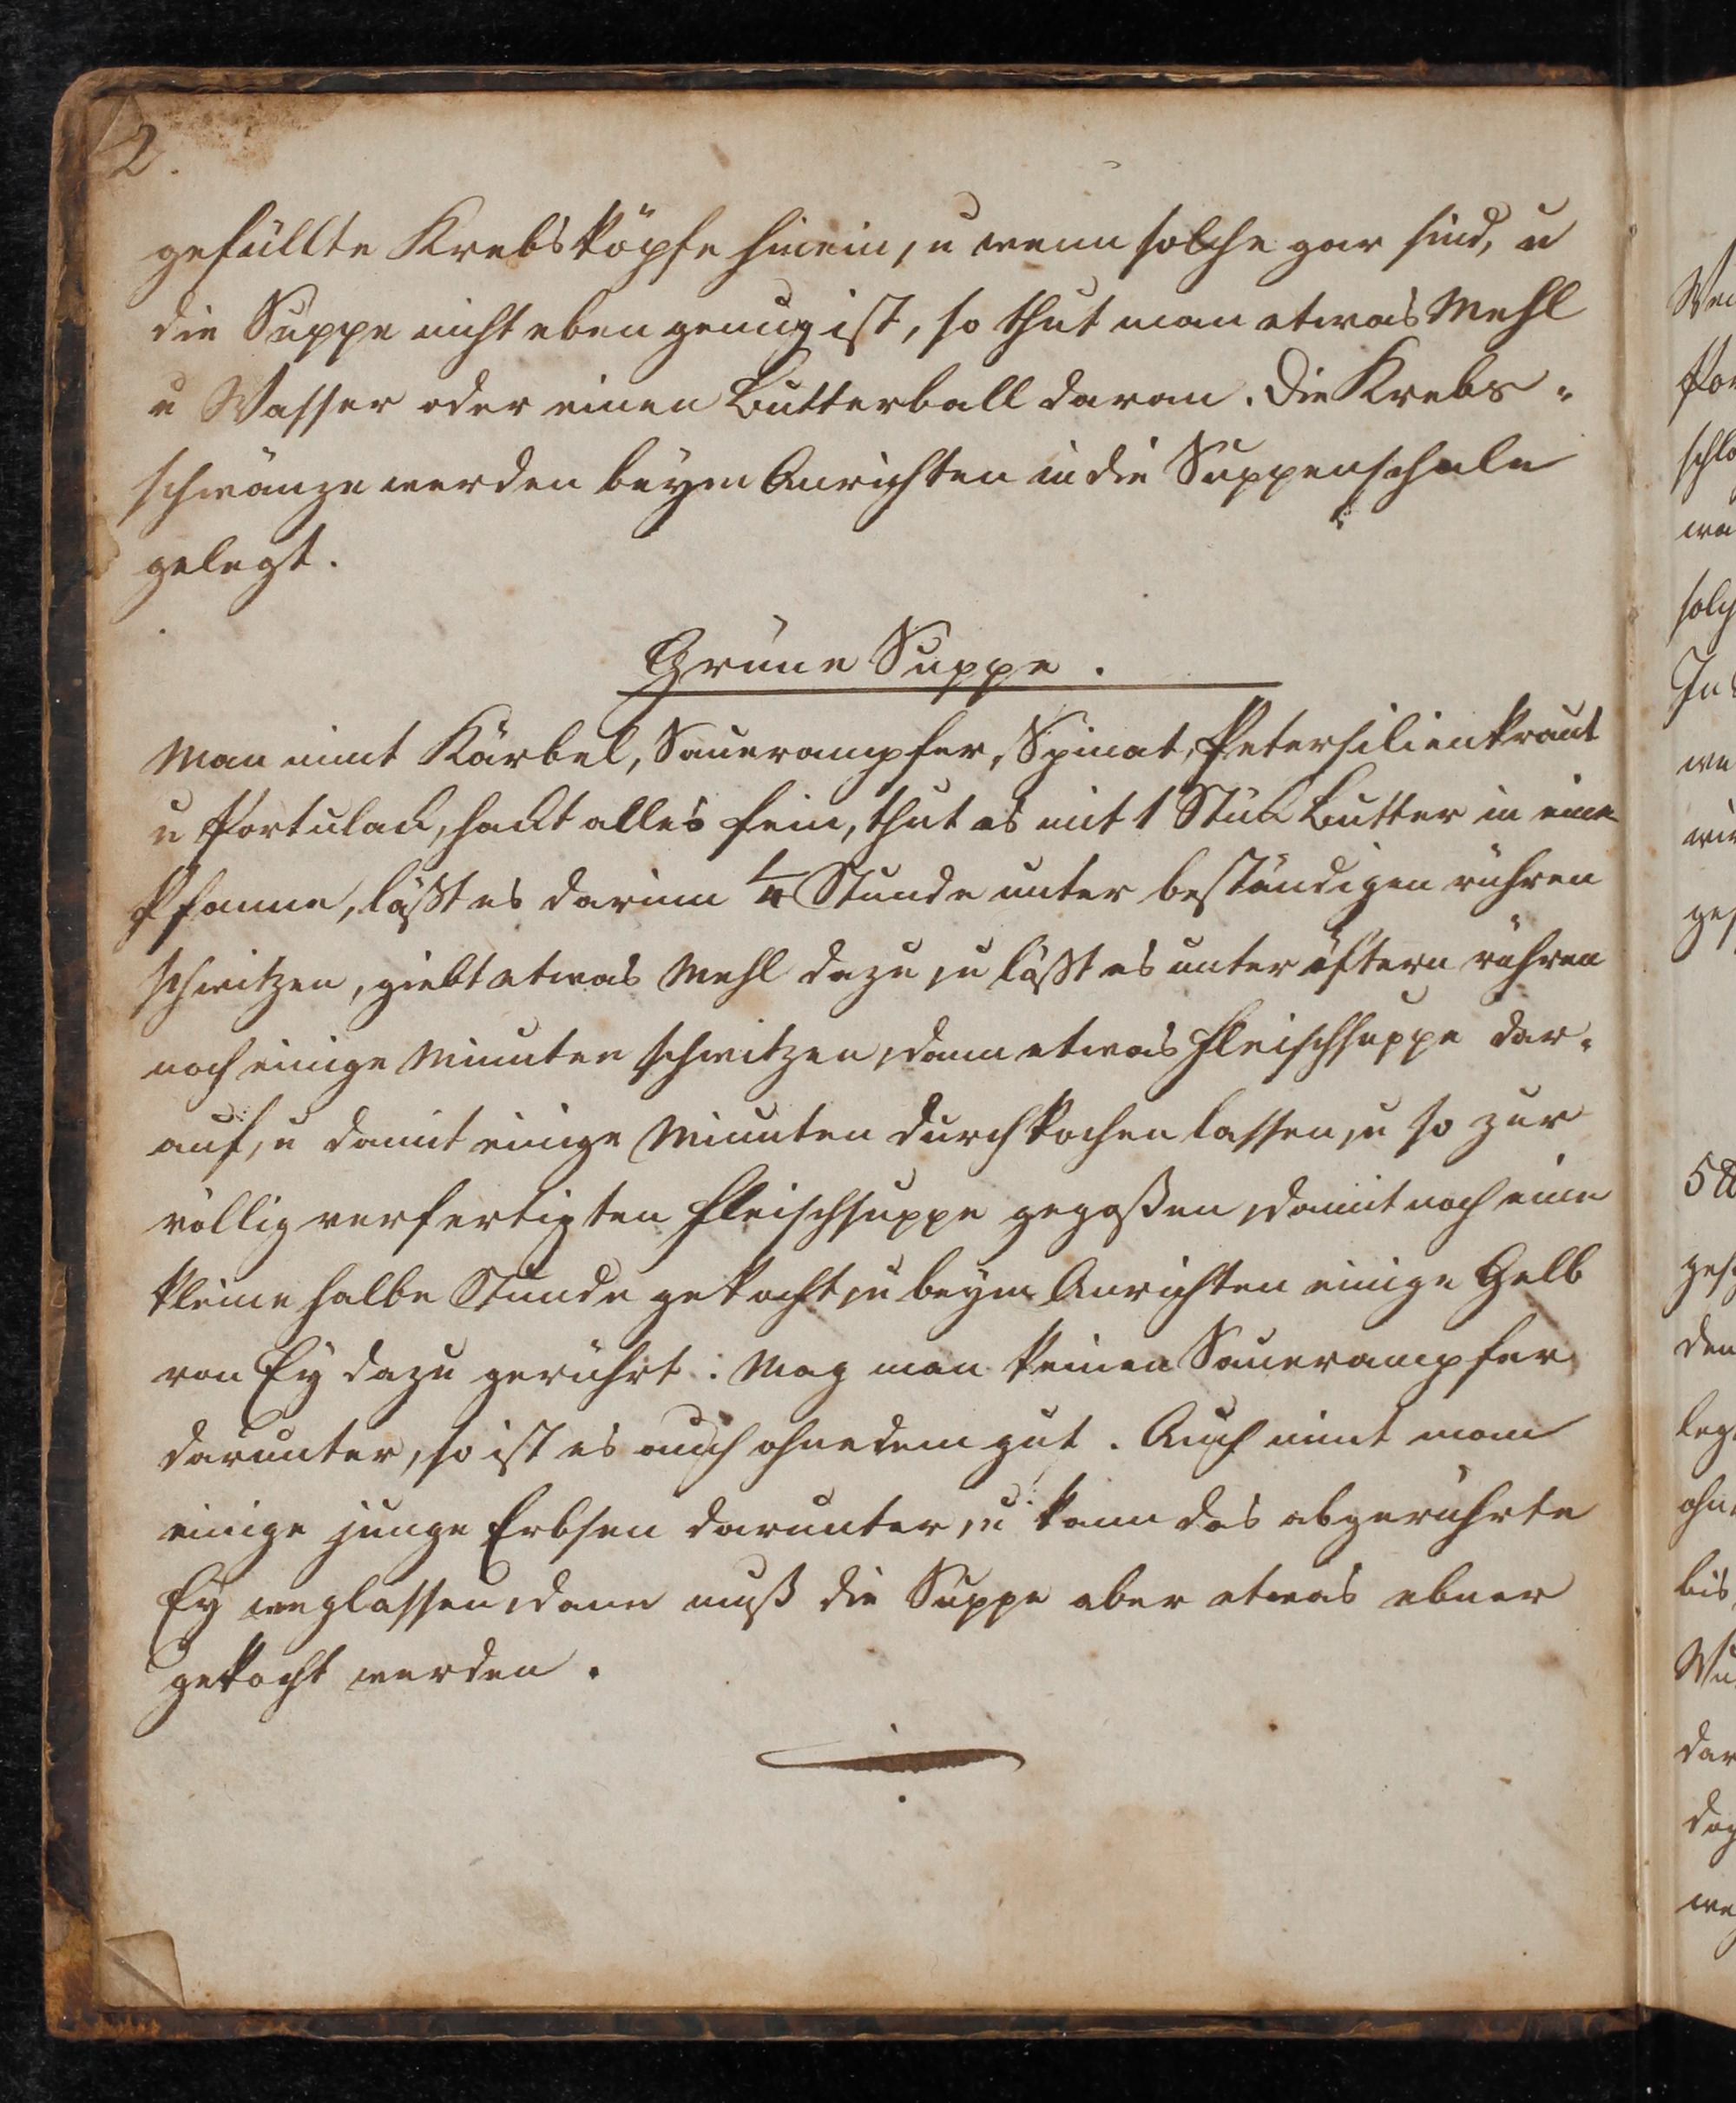 2.
gefüllte Krebsköpfe hinein, u wenn solche gar sind, u
die Suppe nicht eben genug ist, so thut man etwas Mehl
u Wasser oder einen Butterball daran. Die Krebs-
schwänze werden beym Anrichten in die Suppenschale
gelegt.
Grüne Suppe.
Man nimt Kärbel, Sauerampfer, Spinat, Petersilienkraut
u Portulack, hackt alles fein, thut es mit 1 Stük Butter in eine
Pfanne, läßt es darinn 1/4 Stunde unter beständigen rühren
schwitzen, giebt etwas Mehl dazu, u läßt es unter öftern rühren
noch einige Minuten schwitzen, dann etwas Fleischsuppe dar-
auf, u damit einige Minuten durchkochen lassen, u so zur
völlig verfertigten Fleischsuppe gegoßen, damit noch eine
kleine halbe Stunde gekocht, u beym Anrichten einige Gelb
von Ey dazu gerührt. Mag man keinen Sauerampfer
darunter, so ist es auch ohnedem gut. Auch nimt man
einige junge Erbsen darunter, u kann das abgerührte
Ey weglassen, dann muß die Suppe aber etwas ebner
gekocht werden.